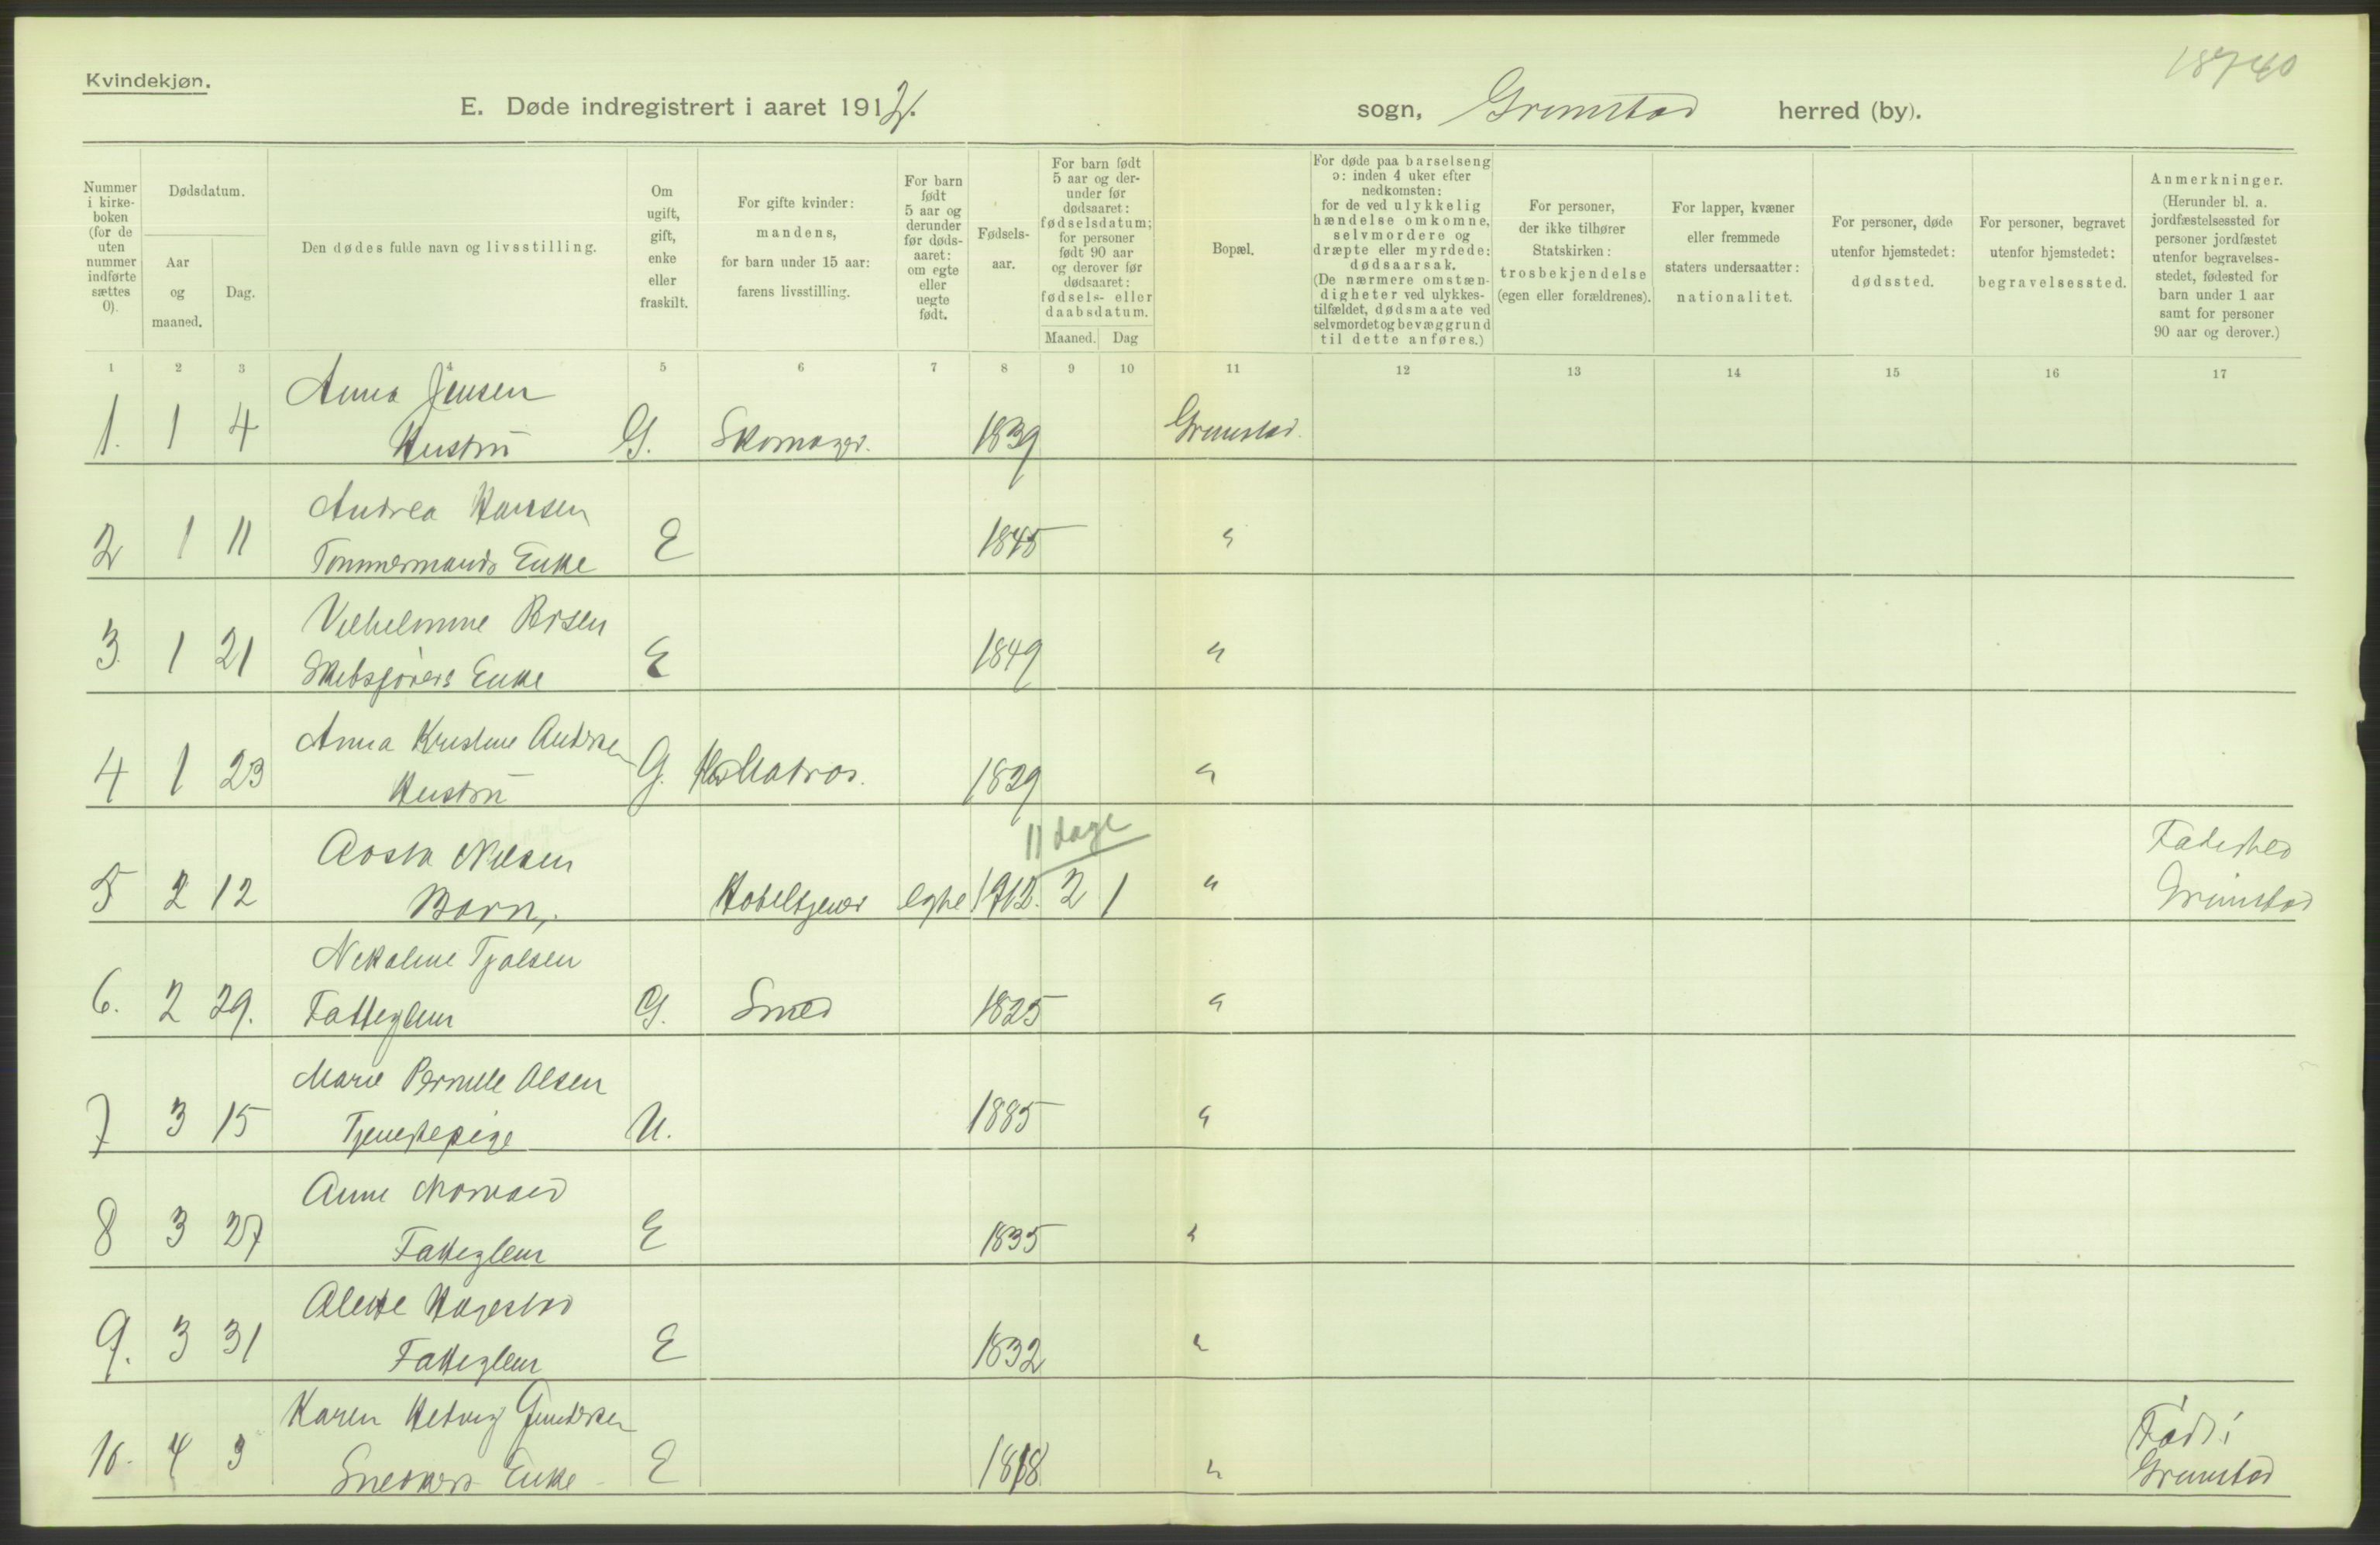 Kvindekjøn.
18740
E. Døde indregistrert i aaret 1912. sogn, Grimstad herred (by).
Nummer i kirkeboken (for de uten nummer indførte sættes 0).
Dødsdatum.
Aar og maaned.
Dag.
Den dødes fulde navn og livsstilling.
Om ugift, gift, enke eller fraskilt.
For gifte kvinder: mandens, for barn under 15 aar: farens livsstilling.
For barn født 5 aar og derunder før dødsaaret: om egte eller uegte født.
Fødselsaar.
For barn født 5 aar og derunder før dødsaaret: fødselsdatum; for personer født 90 aar og derover før dødsaaret: fødsels- eller daabsdatum.
Maaned. Dag
Bopæl.
For døde paa barselseng ɔ: inden 4 uker efter nedkomsten: for de ved ulykkelig hændelse omkomne, selvmordere og dræpte eller myrdede: dødsaarsak. (De nærmere omstændigheter ved ulykkestilfældet, dødsmaate ved selvmordet og bevæggrund til dette anføres.)
For personer, der ikke tilhører Statskirken: trosbekjendelse (egen eller forældrenes).
For lapper, kvæner eller fremmede staters undersaatter: nationalitet.
For personer, døde utenfor hjemstedet: dødssted.
For personer, begravet utenfor hjemstedet: begravelsessted.
Anmerkninger. (Herunder bl. a. jordfæstelsessted for personer jordfæstet utenfor begravelsesstedet, fødested for barn under 1 aar samt for personer 90 aar og derover.)
1 2 3 4 5 6 7 8 9 10 11 12 13 14 15 16 17
Anna Jensen
1. 1 4 Hustru G. Skomager. 1839 Grimstad.
Andrea Hansen
2 1 11 Tømmermands Enke E 1845 "
Vilhelmine
3. 1 21 Skibsførers Enke E 1849 "
Anna Kristine Andersen
4 1 23 Hustru G. Matros. 1829 "
11 dage
Aosta Nilsen Fødested
5 2 12 Barn, Hoteltjener egte 1912. 2 1 " Grimstad
Nikoline Tjolsen
6. 2 29. Fattiglem G. Smed 1825 "
Marie Pernille Olsen
7 3 15 Tjenestepige U. 1885 "
Anne Morvaid
8 3 27 Fattiglem E 1835 "
Alette Hagestad
9. 3 31 Fattiglem E 1832 "
Karen Hedvig Gundersen Født i
10. 4 3 Snedkers Enke E 1818 " Grimstad